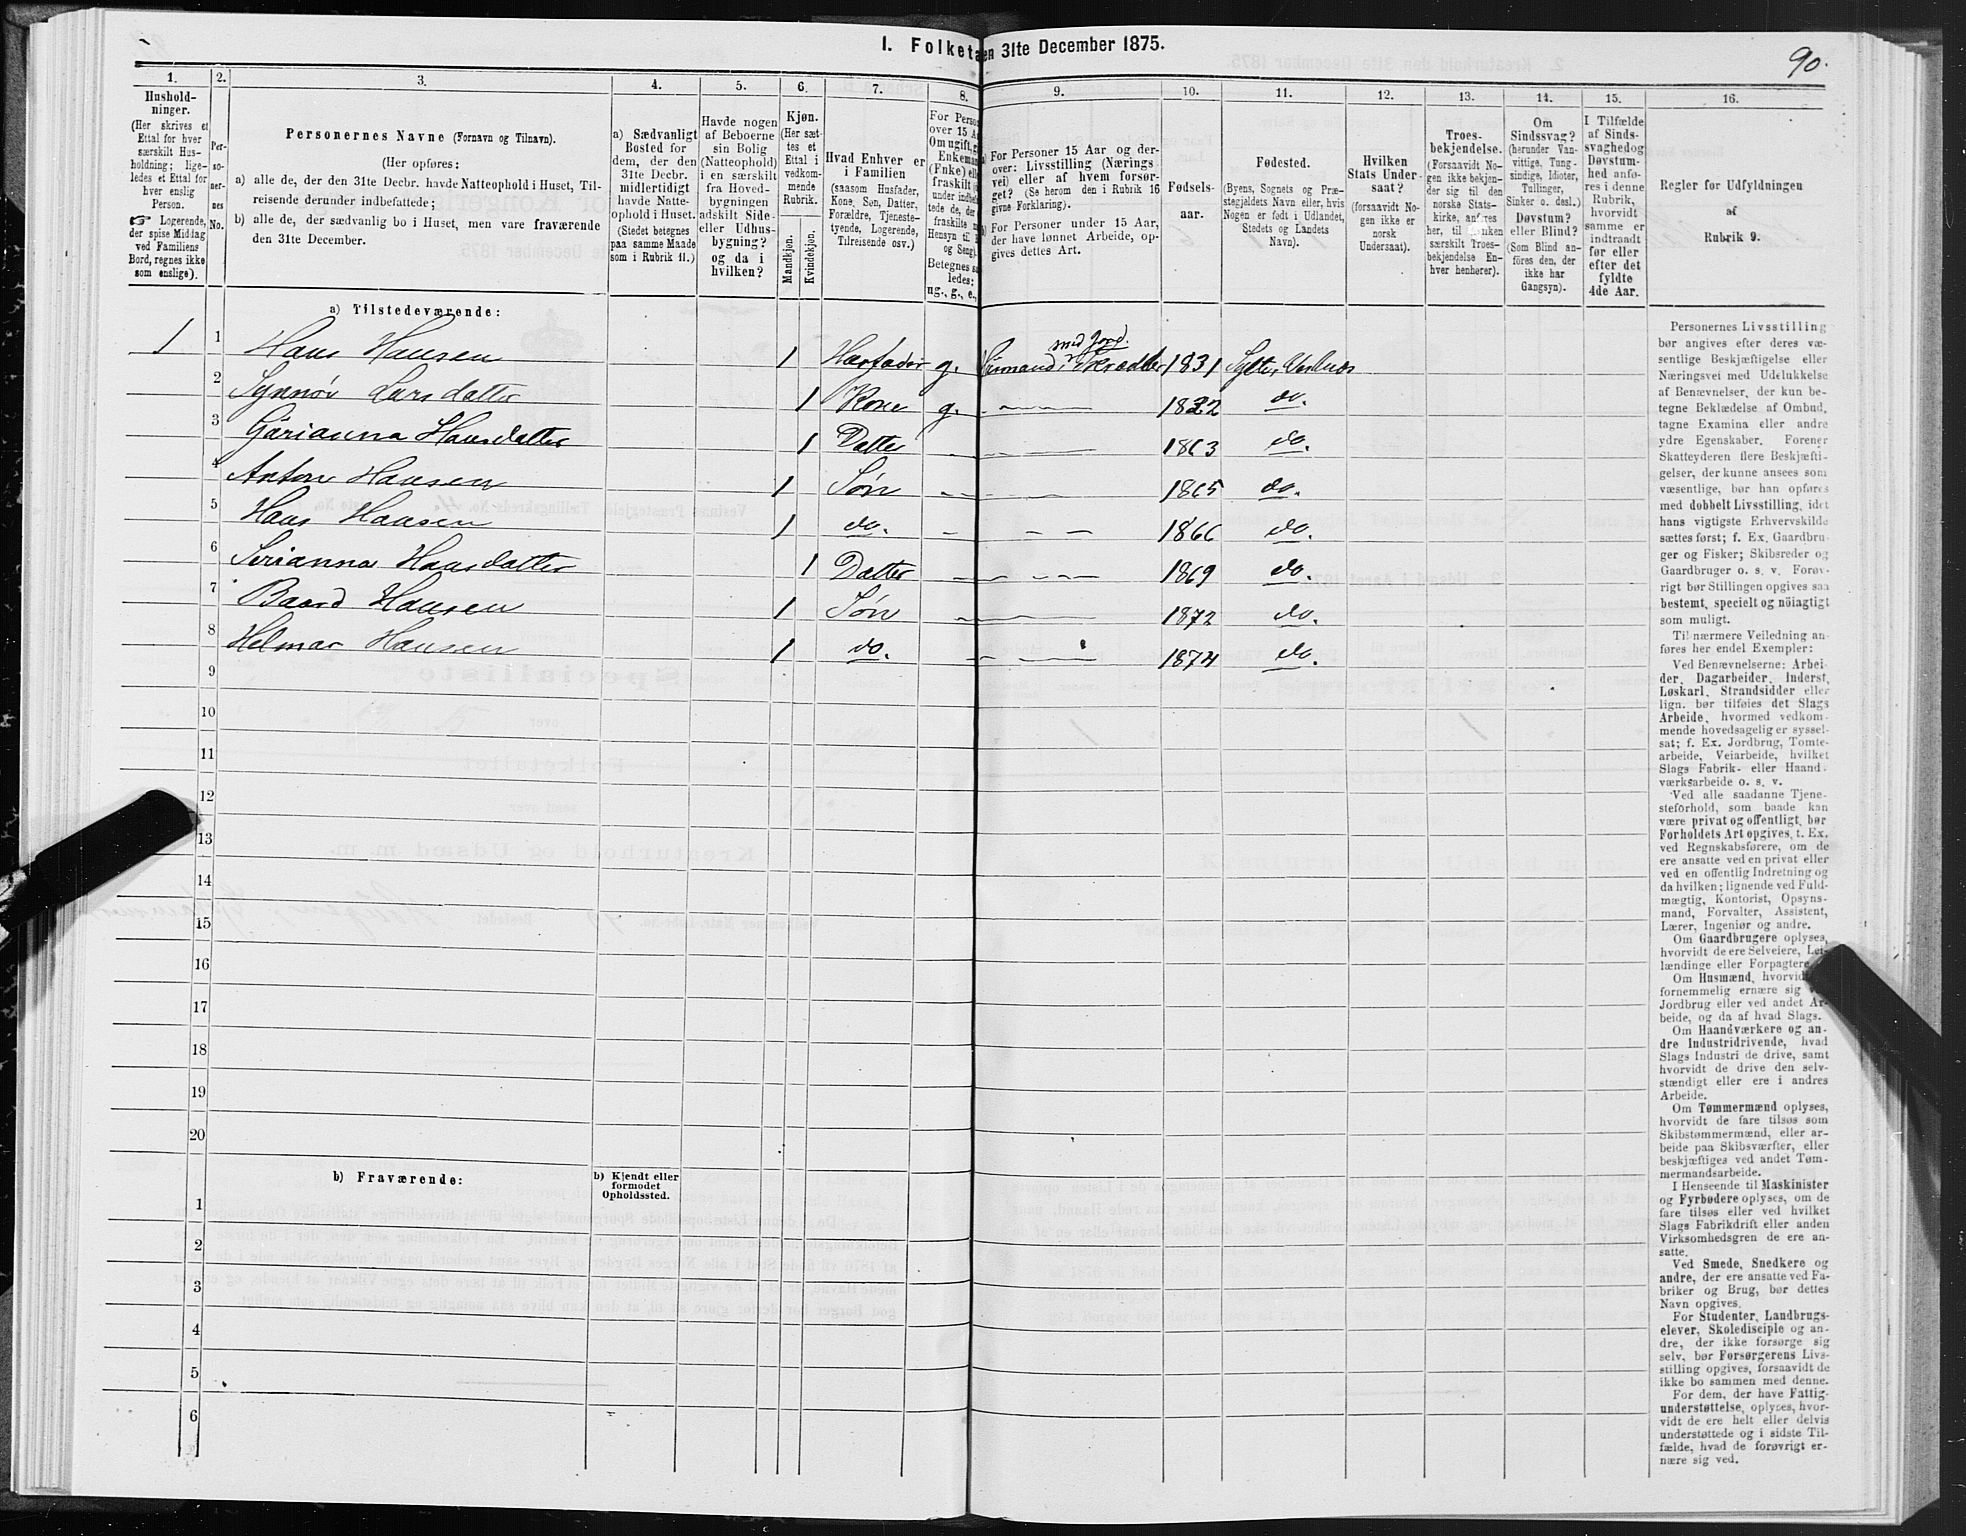 1. Folketa en 31te December 1875.
90.
1. 2. 3. 4. 5. 6. 7. 8. 9. 10. 11. 12. 13. 14. 15. 16.
Hushold-
ninger.
(Her skrives et
Ettal for hver
særskilt Hus-
holdning; lige-
ledes et Ettal for
hver enslig
Person.
Logerende,
der spise Middag
ved Familiens
Bord, regnes ikke
som enslige).
Per-
so-
ner-
nes
No.
Personernes Navne (Fornavn og Tilnavn).
(Her opføres:
a) alle de, der den 31te Decbr. havde Natteophold i Huset, Til-
reisende derunder indbefattede;
b) alle de, der sædvanlig bo i Huset, men vare fraværende
den 31te December.
a) Sædvanligt
Bosted for
dem, der den
31te Decbr.
midlertidigt
havde Natte-
ophold i Huset.
(Stedet betegnes
paa samme Maade
som i Rubrik 11.)
Havde nogen
af Beboerne
sin Bolig
(Natteophold)
i en særskilt
fra Hoved-
bygningen
adskilt Side-
eller Udhus-
bygning?
og da i
hvilken?
Kjøn.
(Her sæt-
tes et
Ettal i
vedkom-
mende
Rubrik.
Mandkjøn.
Kvindekjøn.
Hvad Enhver er
i Familien
(saasom Husfader,
Kone, Søn, Datter,
Forældre, Tjeneste-
tyende, Logerende,
Tilreisende osv.)
For Perso
over 15 A
Om ugift, g
Enkeman
(Enke) ell
fraskilt
under indbef
tede de, der
fraskilte
Hensyn til
og Seng).
Betegnes s
ledes:
ug., g., e.,
a) For Personer 15 Aar og der-
over: Livsstilling (Nærings
vei) eller af hvem forsør-
get? (Se herom den i Rubrik 16
givne Forklaring).
b) For Personer under 15 Aar,
der have lønnet Arbeide, op-
gives dettes Art.
Fødsels-
aar.
Fødested.
(Byens, Sognets og Præ-
stegjeldets Navn eller, hvis
Nogen er født i Udlandet,
Stedets og Landets
Navn).
Hvilken
Stats Under-
saat?
(forsaavidt No-
gen ikke er
norsk
Undersaat).
Troes-
bekjendelse.
(Forsaavidt No-
gen ikke bekjen-
der sig til den
norske Stats-
kirke, anføres
her, til hvilken
særskilt Troes-
bekjendelse En-
hver henhører).
Om
Sindssvag?
(herunder Van-
vittige, Tung-
sindige, Idioter,
Tullinger,
Sinker o. desl.)
Døvstum?
eller Blind?
(Som Blind an-
føres den, der
ikke har
Gangsyn).
I Tilfælde
af Sinds-
svaghed og
Døvstum-
hed anfø-
res i denne
Rubrik,
hvorvidt
samme er
indtraadt
før eller
efter det
fyldte
4de Aar.
Regler for Udfyldningen
af
Rubrik 9.
a) Tilstedeværende:
med Jord.
1 1 Hans Hansen 1 Husfader g. 1831
2 Synnøv Larsdatter 1 Kone g. 1822 do.
3 Gørianna Hansdatter 1 Datter 1863 do.
4 Anton Hansen 1 Søn 1865 do.
5 Hans Hansen 1 do. 1866 do.
6 Serianna Hansdatter 1 Datter 1869 do.
7 Baard Hansen 1 Søn 1872 do.
8 Helmar Hansen 1 do. 1874 do.
9
10
11
12
13
14
15
16
17
18
19
20
b) Fraværende:
b) Kjendt eller
formodet
Opholdssted.
1
2
3
4
5
6
Personernes Livsstilling
bør angives efter deres væ-
sentlige Beskjæftigelse eller
Næringsvei med Udelukkelse
af Benævnelser, der kun be-
tegne Beklædelse af Ombud,
tagne Examina eller andre
ydre Egenskaber. Forener
Skatteyderen flere Beskjæfti-
gelser, der kunne ansees som
væsentlige, bør han opføres
med dobbelt Livsstilling, idet
hans vigtigste Erhvervskilde
sættes først; f. Ex. Gaardbru-
ger og Fisker; Skibsreder og
Gaardbruger o. s. v. Forøv-
rigt bør Stillingen opgives saa
bestemt, specielt og nöiagtigt
som muligt.
Til nærmere Veiledning an-
føres her endel Exempler:
Ved Benævnelserne: Arbei-
der, Dagarbeider, Inderst,
Løskarl, Strandsidder eller
lign. bør tilføies det Slags
Arbeide, hvormed vedkom-
mende hovedsagelig er syssel-
sat; f. Ex. Jordbrug, Tomte-
arbeide, Veiarbeide, hvilket
Slags Fabrik- eller Haand-
værksarbeide o. s. v.
Ved alle saadanne Tjene-
steforhold, som baade kan
være privat og offentligt, bør
Forholdets Art opgives, t. Ex.
ved Regnskabsførere, om de
ere ansatte ved en privat eller
ved en offentlig Indretning og
da hvilken; lignende ved Fuld-
mægtig, Kontorist, Opsyns-
mand, Forvalter, Assistent,
Lærer, Ingeniør og andre.
Om Gaardbrugere oplyses,
hvorvidt de ere Selveiere, Lei-
lændinge eller Forpagtere.
Om Husmænd, hvorvidt
fornemmelig ernære sig
Jordbrug eller ved andet Ar-
beide, og da af hvad Slags.
Om Haandværkere og an-
dre Industridrivende, hvad
Slags Industri de drive, samt
hvorvidt de drive den selv-
stændigt eller ere i andres
Arbeide.
Om Tømmermænd oplyses,
hvorvidt de fare tilsøs som
Skibstømmermænd, eller ar-
beide paa Skibsværfter, eller
beskjæftiges ved andet Tøm-
mermandsarbeide.
I Henseende til Maskinister
og Fyrbødere oplyses, om de
fare tilsøs eller ved hvilket
Slags Fabrikdrift eller anden
Virksomhedsgren de ere an-
satte.
Ved Smede, Snedkere og
andre, der ere ansatte ved Fa-
briker og Brug, bør dettes
Navn opgives.
For Studenter, Landbrugs-
elever, Skoledisciple og an-
dre, der ikke forsørge sig
selv, bør Forsørgerens Livs-
stilling opgives, forsaavidt de
ikke bo sammen med denne.
For dem, der have Fattig-
understøttelse, oplyses, hvor-
vidt de ere helt eller delvis
understøttede og i sidste Til-
fælde, hvad de forøvrigt er-
nære sig ved.